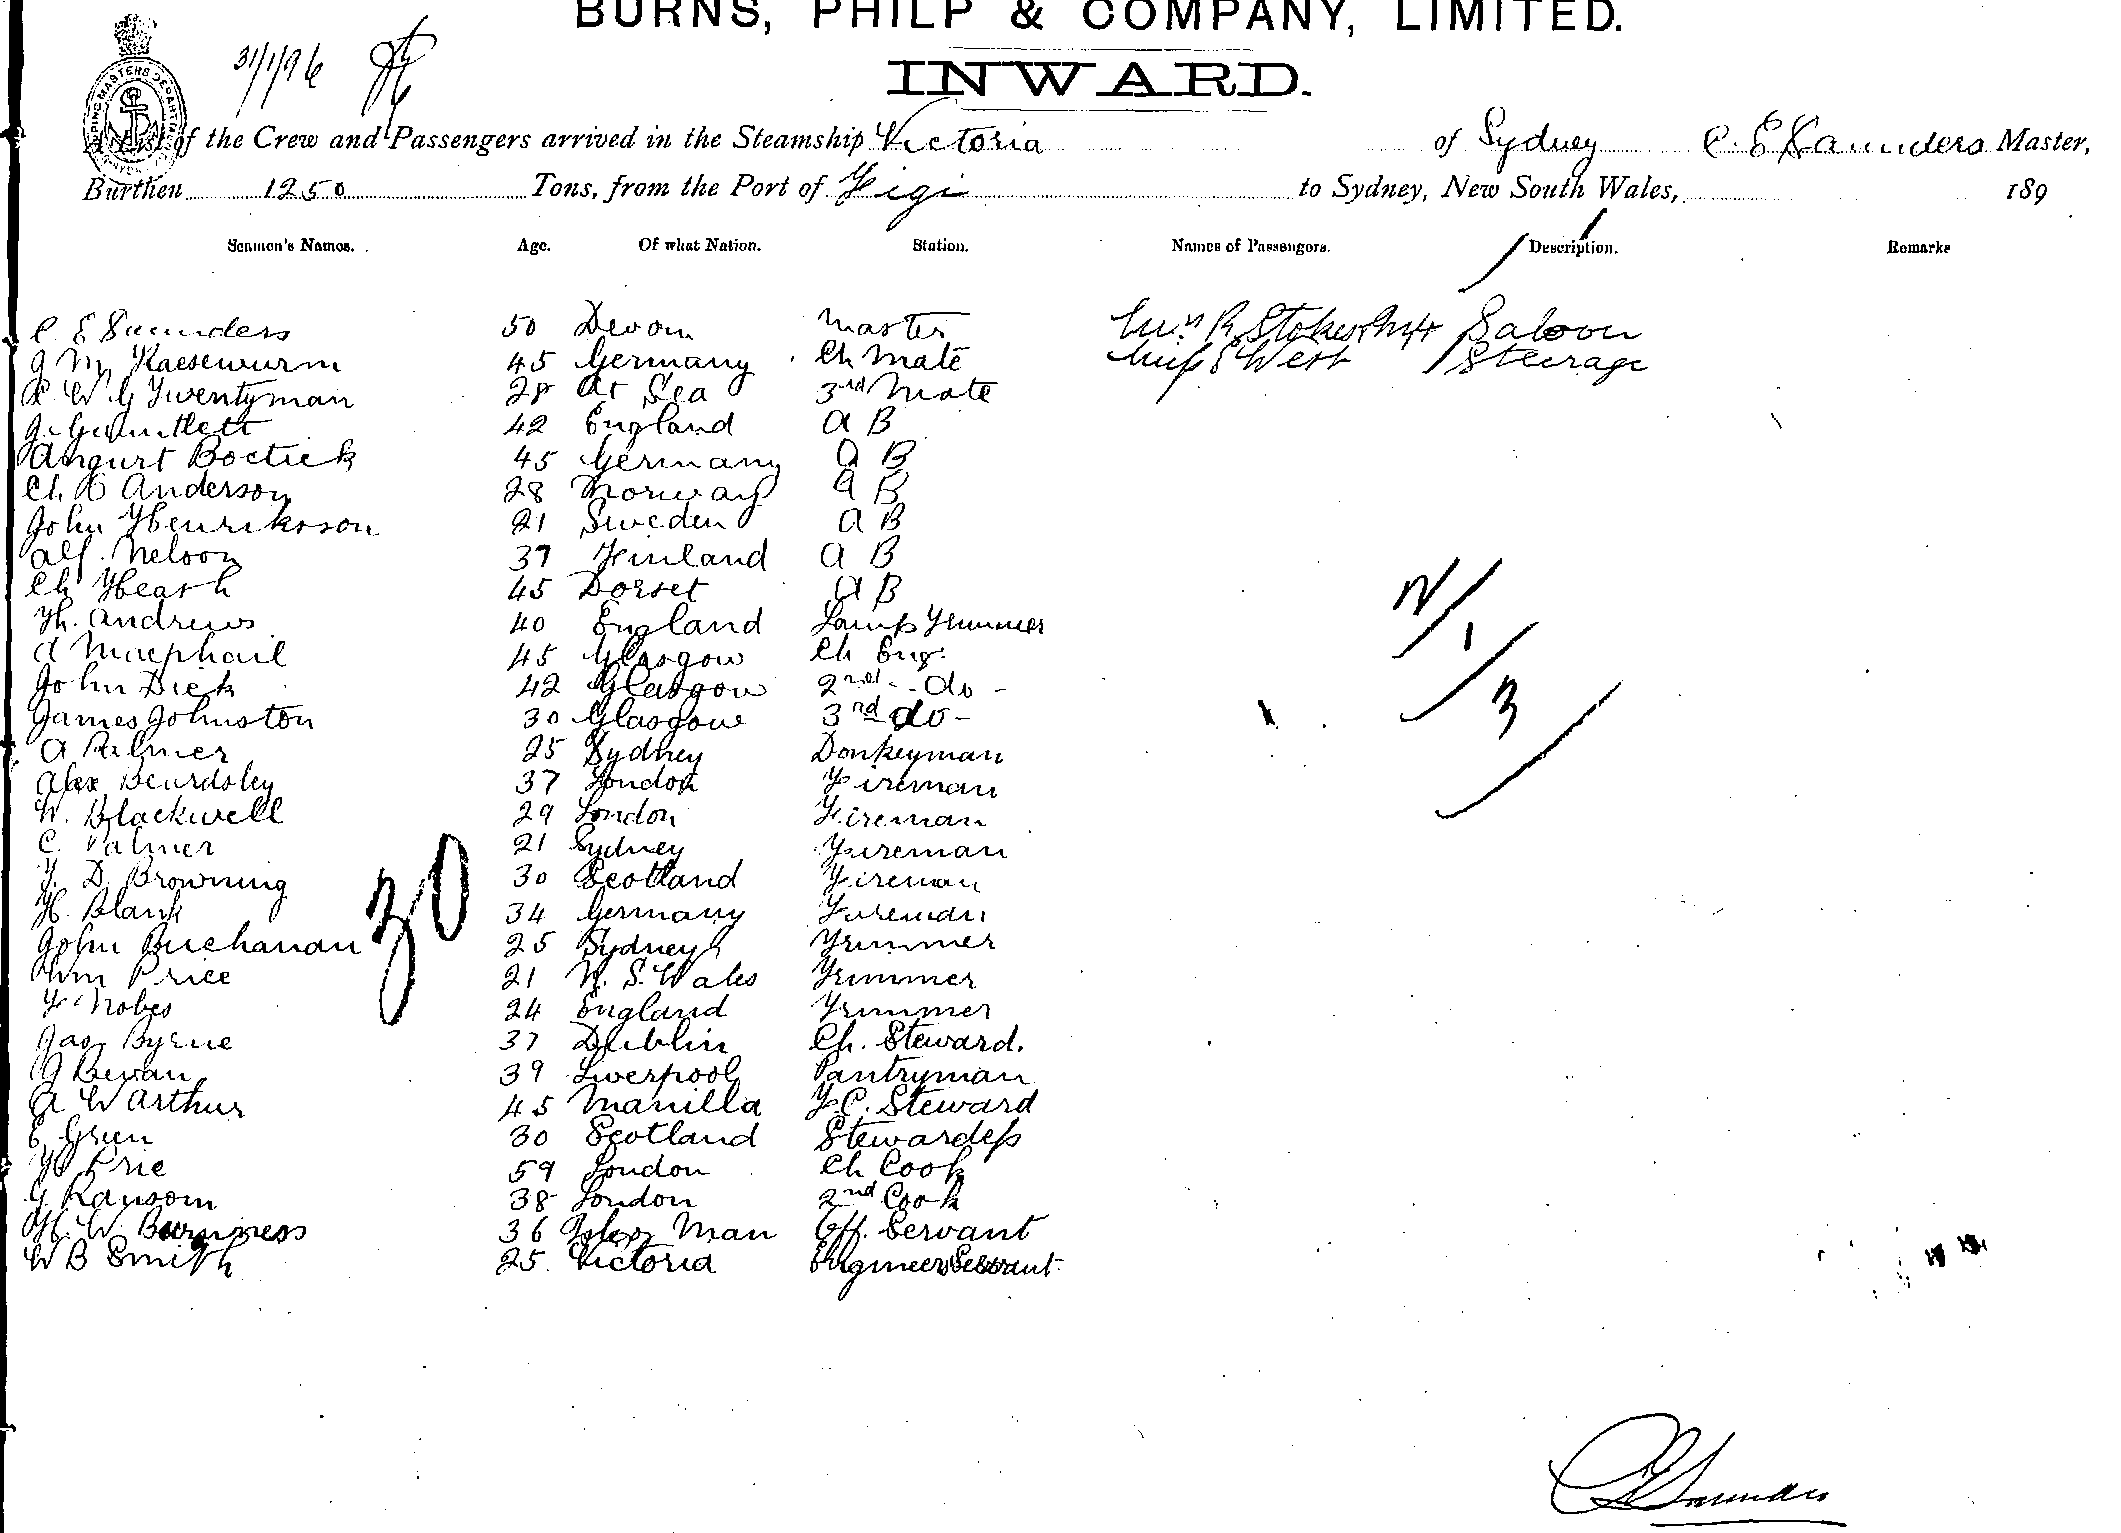 BURNS, PHILP & COMPANY, LIMITED.
31/1/96
INWARD.
of the Crew and Passengers arrived in the Steamship Victoria of Sydney C. E Saunders Master,
Burthen 1250 Tons, from the Port of Figi to Sydney, New South Wales, 189
Seamen's Names. Age. Of what Nation. Station. Names of Passengers. Description. Remarks
C E Saunders 50 Devon Master R. Stokes Saloon
J M Kaesewurm 45 Germany Ch Mate Miss West Steerage
W G Twentyman 28 At Sea 3rd Mate
J. Gauntlett 42 England A B
August Boetick 45 Germany A B
Ch Anderson 28 Norway A B
John Henriksson 21 Sweden A B
Alf. Nelson 37 Finland A B
Ch Heash 45 Dorset A B
Th. Andrews 40 England Lamp Trimmer
A Macphail 45 Glasgow Ch Eng.
John Dick 42 Glasgow 2nd - do -
James Johnston 30 Glasgow 3rd do -
A Palmer 25 Sydney Donkeyman
Alex Beardsley 37 London Fireman
W. Blackwell 29 London Fireman
C. Palmer 21 Sydney Fireman
T. D. Browning 30 Scotland Fireman
H. Blank 34 Germany Fireman
John Buchanan 25 Sydney Trimmer
Wm Price 21 N. S. Wales Trimmer
F Nobes 24 England Trimmer
30
Jas Byrne 37 Dublin Ch. Steward.
J Bevan 39 Liverpool Pantryman
A W Arthur 45 Manilla F.C. Steward
E Green 30 Scotland Stewardess
H Prie 59 London Ch Cook
G Ransom 38 London 2nd Cook
H. W. Burgess 36 Isle of Man Off. Servant
W B Smith 25 Victoria Engineers Servant